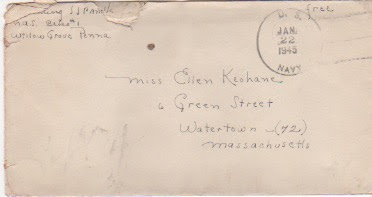 free
Willow Grove Penna
U. S.
JAN
22
1945
NAVY
Miss Ellen Keohane
6 Green Street
Watertown (72)
Massachusetts